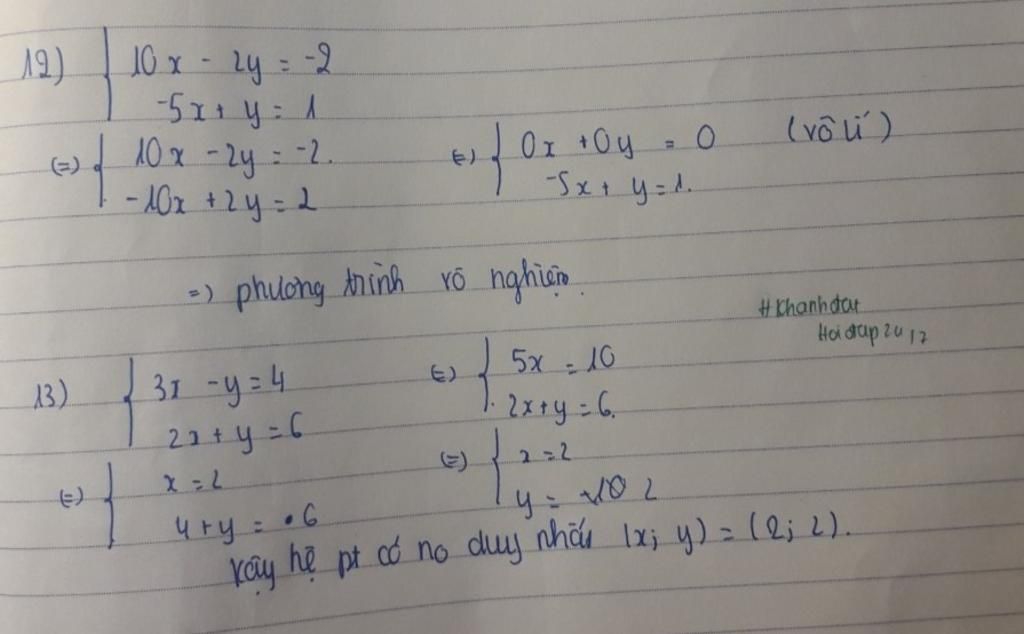 12) { 10x - 2y = -2
-5x + y = 1
(=) { 10x - 2y = -2.
-10x + 2y = 2
(=) { 0x + 0y = 0 (vô lí)
-5x + y = 1.
=) phương trình vô nghiệm.
#Khanhdat
Hoidap247
13) { 3x - y = 4
2x + y = 6
(=) { 5x = 10
2x + y = 6.
(=) { x = 2
4 + y = 6
(=) { x = 2
y = 2
Vậy hệ pt có no duy nhất (x; y) = (2; 2).